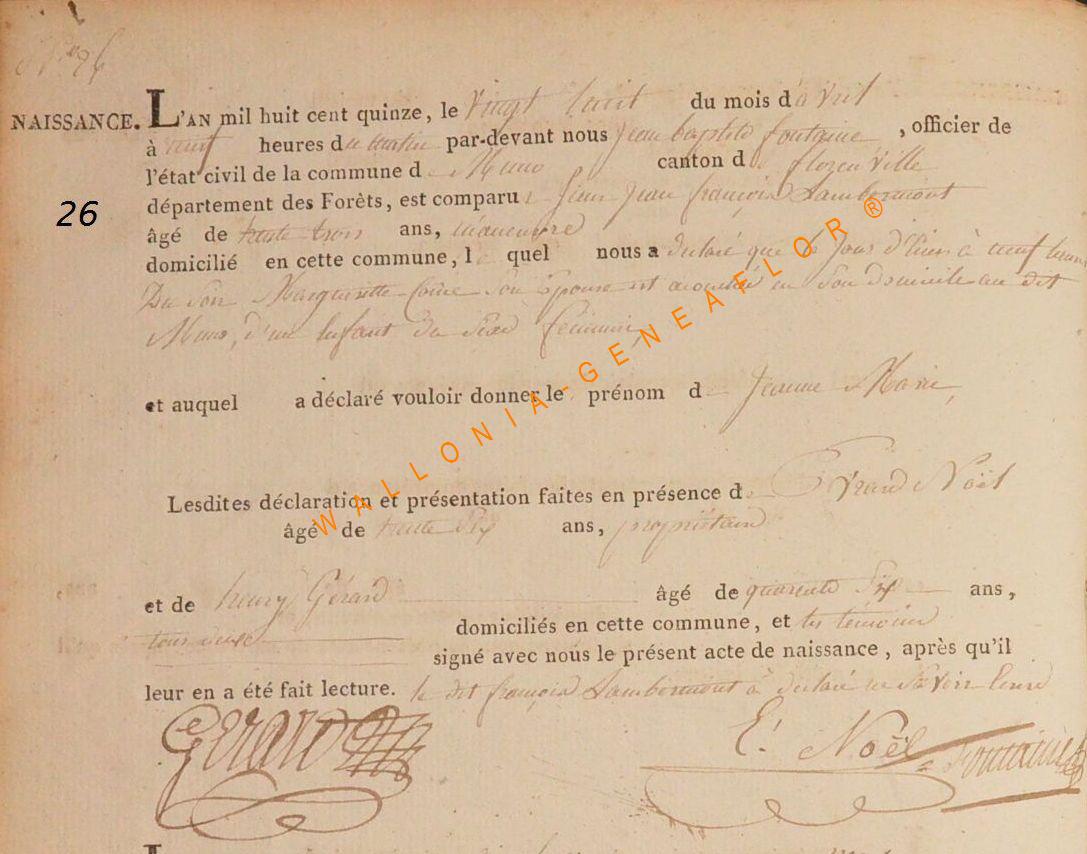 N° 26
26
NAISSANCE. L'AN mil huit cent quinze, le vingt huit du mois d'avril
à neuf heures du matin par-devant nous Jean baptiste fontaine, officier de
l'état civil de la commune d Muno canton d florenville
département des Forêts, est comparu jean françois Lambermont
âgé de trente trois ans,
domicilié en cette commune, lequel nous a déclaré que le jour d'hier à neuf heures
Du Soir Margueritte son Epouse est accouchée en son domicile au dit
Muno, d'un Enfant du Sexe feminin,
et auquel a déclaré vouloir donner le prénom de Jeanne Marie,
Lesdites déclaration et présentation faites en présence d Noël
âgé de trente Six ans, propriétaire
et de henry Gérard âgé de quarente Six ans,
tous deux domiciliés en cette commune, et les témoins
signé avec nous le présent acte de naissance, après qu'il
leur en a été fait lecture. le dit françois Lambermont à déclaré ne Savoir
GERARD E. Noël Fontaine
WALLONIA-GENEAFLOR ®